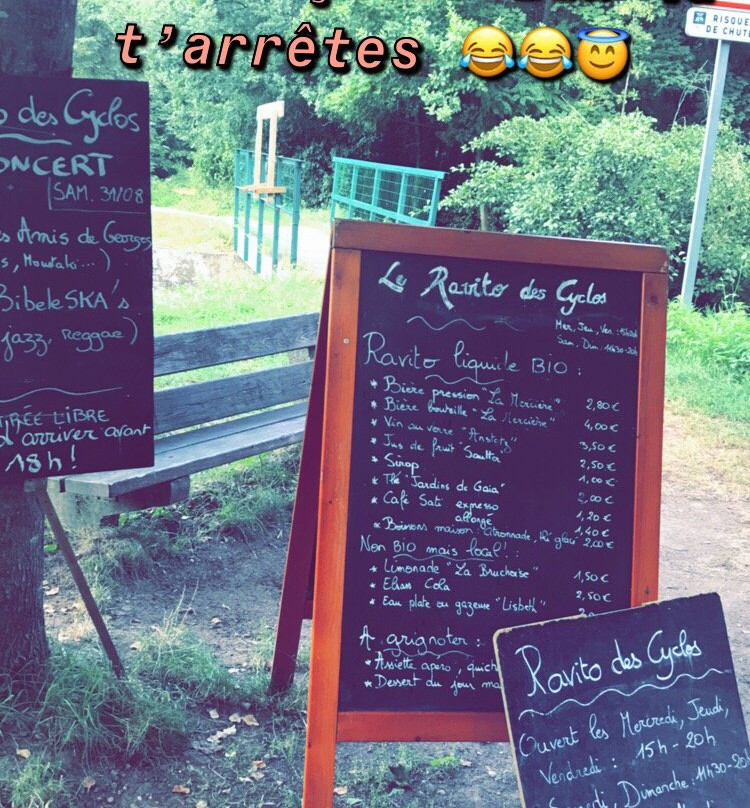 t'arrêtes 😂😂😇
RISQUE
DE CHUTE
des Cyclos
CONCERT
SAM. 31/08
Amis de Georges
Moustaki...)
BibeleSKA's
jazz, Reggae)
ENTRÉE LIBRE
d'arriver avant
18h!
Le Ravito des Cyclos
Mer, Jeu, Ven: 15h20h
Sam, Dim: 11h30-20h
Ravito liquide BIO:
* Bière pression "La Mercière" 2,80€
* Bière bouteille "La Mercière" 4,00€
* Vin au verre 3,50€
* Jus de fruit 2,50€
* Sirop 1,00€
* Thé "Jardins de Gaïa" 2,00€
* Café Sati expresso 1,20€
allongé 1,40€
* Boissons maison: citronnade, thé glacé 2,00€
Non BIO mais local!:
* Limonade 1,50€
* Elsass Cola 2,50€
* Eau plate ou gazeuse "Lisbeth"
A grignoter:
* Assiette apéro, quich
* Dessert du jour ma
Ravito des Cyclos
Ouvert les Mercredi, Jeudi,
Vendredi: 15h-20h
Samedi, Dimanche: 11h30-20h